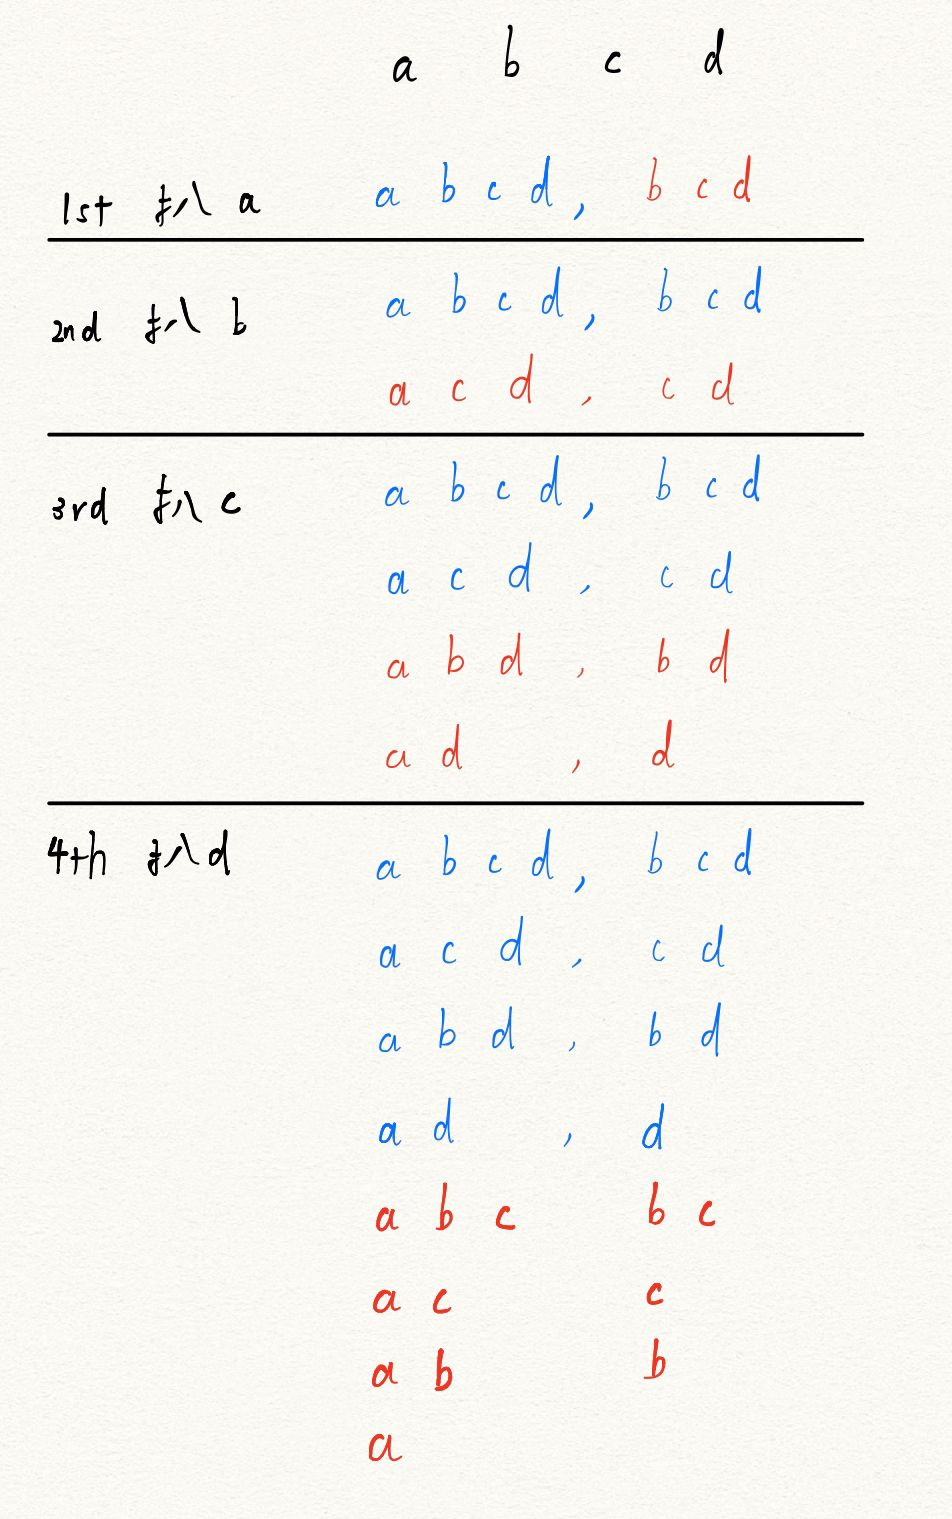 a b c d
1st 扌八 a a b c d , b c d
2nd 扌八 b a b c d , b c d
a c d , c d
3rd 扌八 c a b c d , b c d
a c d , c d
a b d , b d
a d , d
4th 扌八 d a b c d , b c d
a c d , c d
a b d , b d
a d , d
a b c b c
a c c
a b b
a